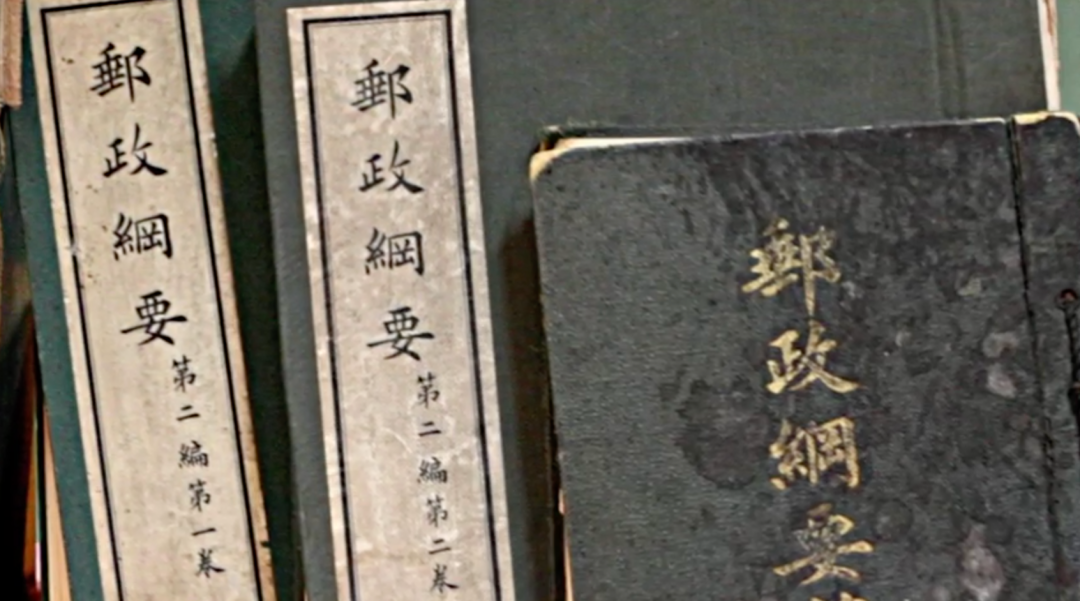 郵政綱要
第二編第一巻
郵政綱要
第二編第二巻
郵政綱要